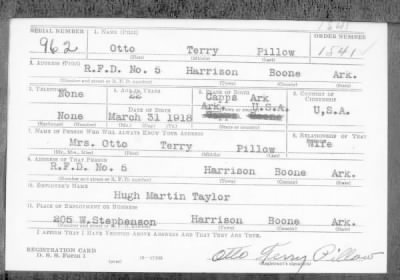 SERIAL NUMBER 1. NAME (Print) ORDER NUMBER
962 Otto Terry Pillow 1841
(First) (Middle) (Last)
2. ADDRESS (Print)
R.F.D. No. 5 Harrison Boone Ark.
(Number and street or R. F. D. number) (Town) (County) (State)
3. TELEPHONE 4. AGE IN YEARS 5. PLACE OF BIRTH 6. COUNTRY OF CITIZENSHIP
None 22 Capps Ark
DATE OF BIRTH Ark. U.S.A. U.S.A.
None March 31 1918
(Exchange) (Number) (Mo.) (Day) (Yr.) (State or country)
7. NAME OF PERSON WHO WILL ALWAYS KNOW YOUR ADDRESS 8. RELATIONSHIP OF THAT PERSON
Mrs. Otto Terry Pillow Wife
(Mr., Mrs., Miss) (First) (Middle) (Last)
9. ADDRESS OF THAT PERSON
R.F.D. No. 5 Harrison Boone Ark.
(Number and street or R. F. D. number) (Town) (County) (State)
10. EMPLOYER'S NAME
Hugh Martin Taylor
11. PLACE OF EMPLOYMENT OR BUSINESS
205 W.Stephenson Harrison Boone Ark.
(Number and street or R. F. D. number) (Town) (County) (State)
I AFFIRM THAT I HAVE VERIFIED ABOVE ANSWERS AND THAT THEY ARE TRUE.
REGISTRATION CARD
D. S. S. Form 1 Otto Terry Pillow
(Registrant's signature)